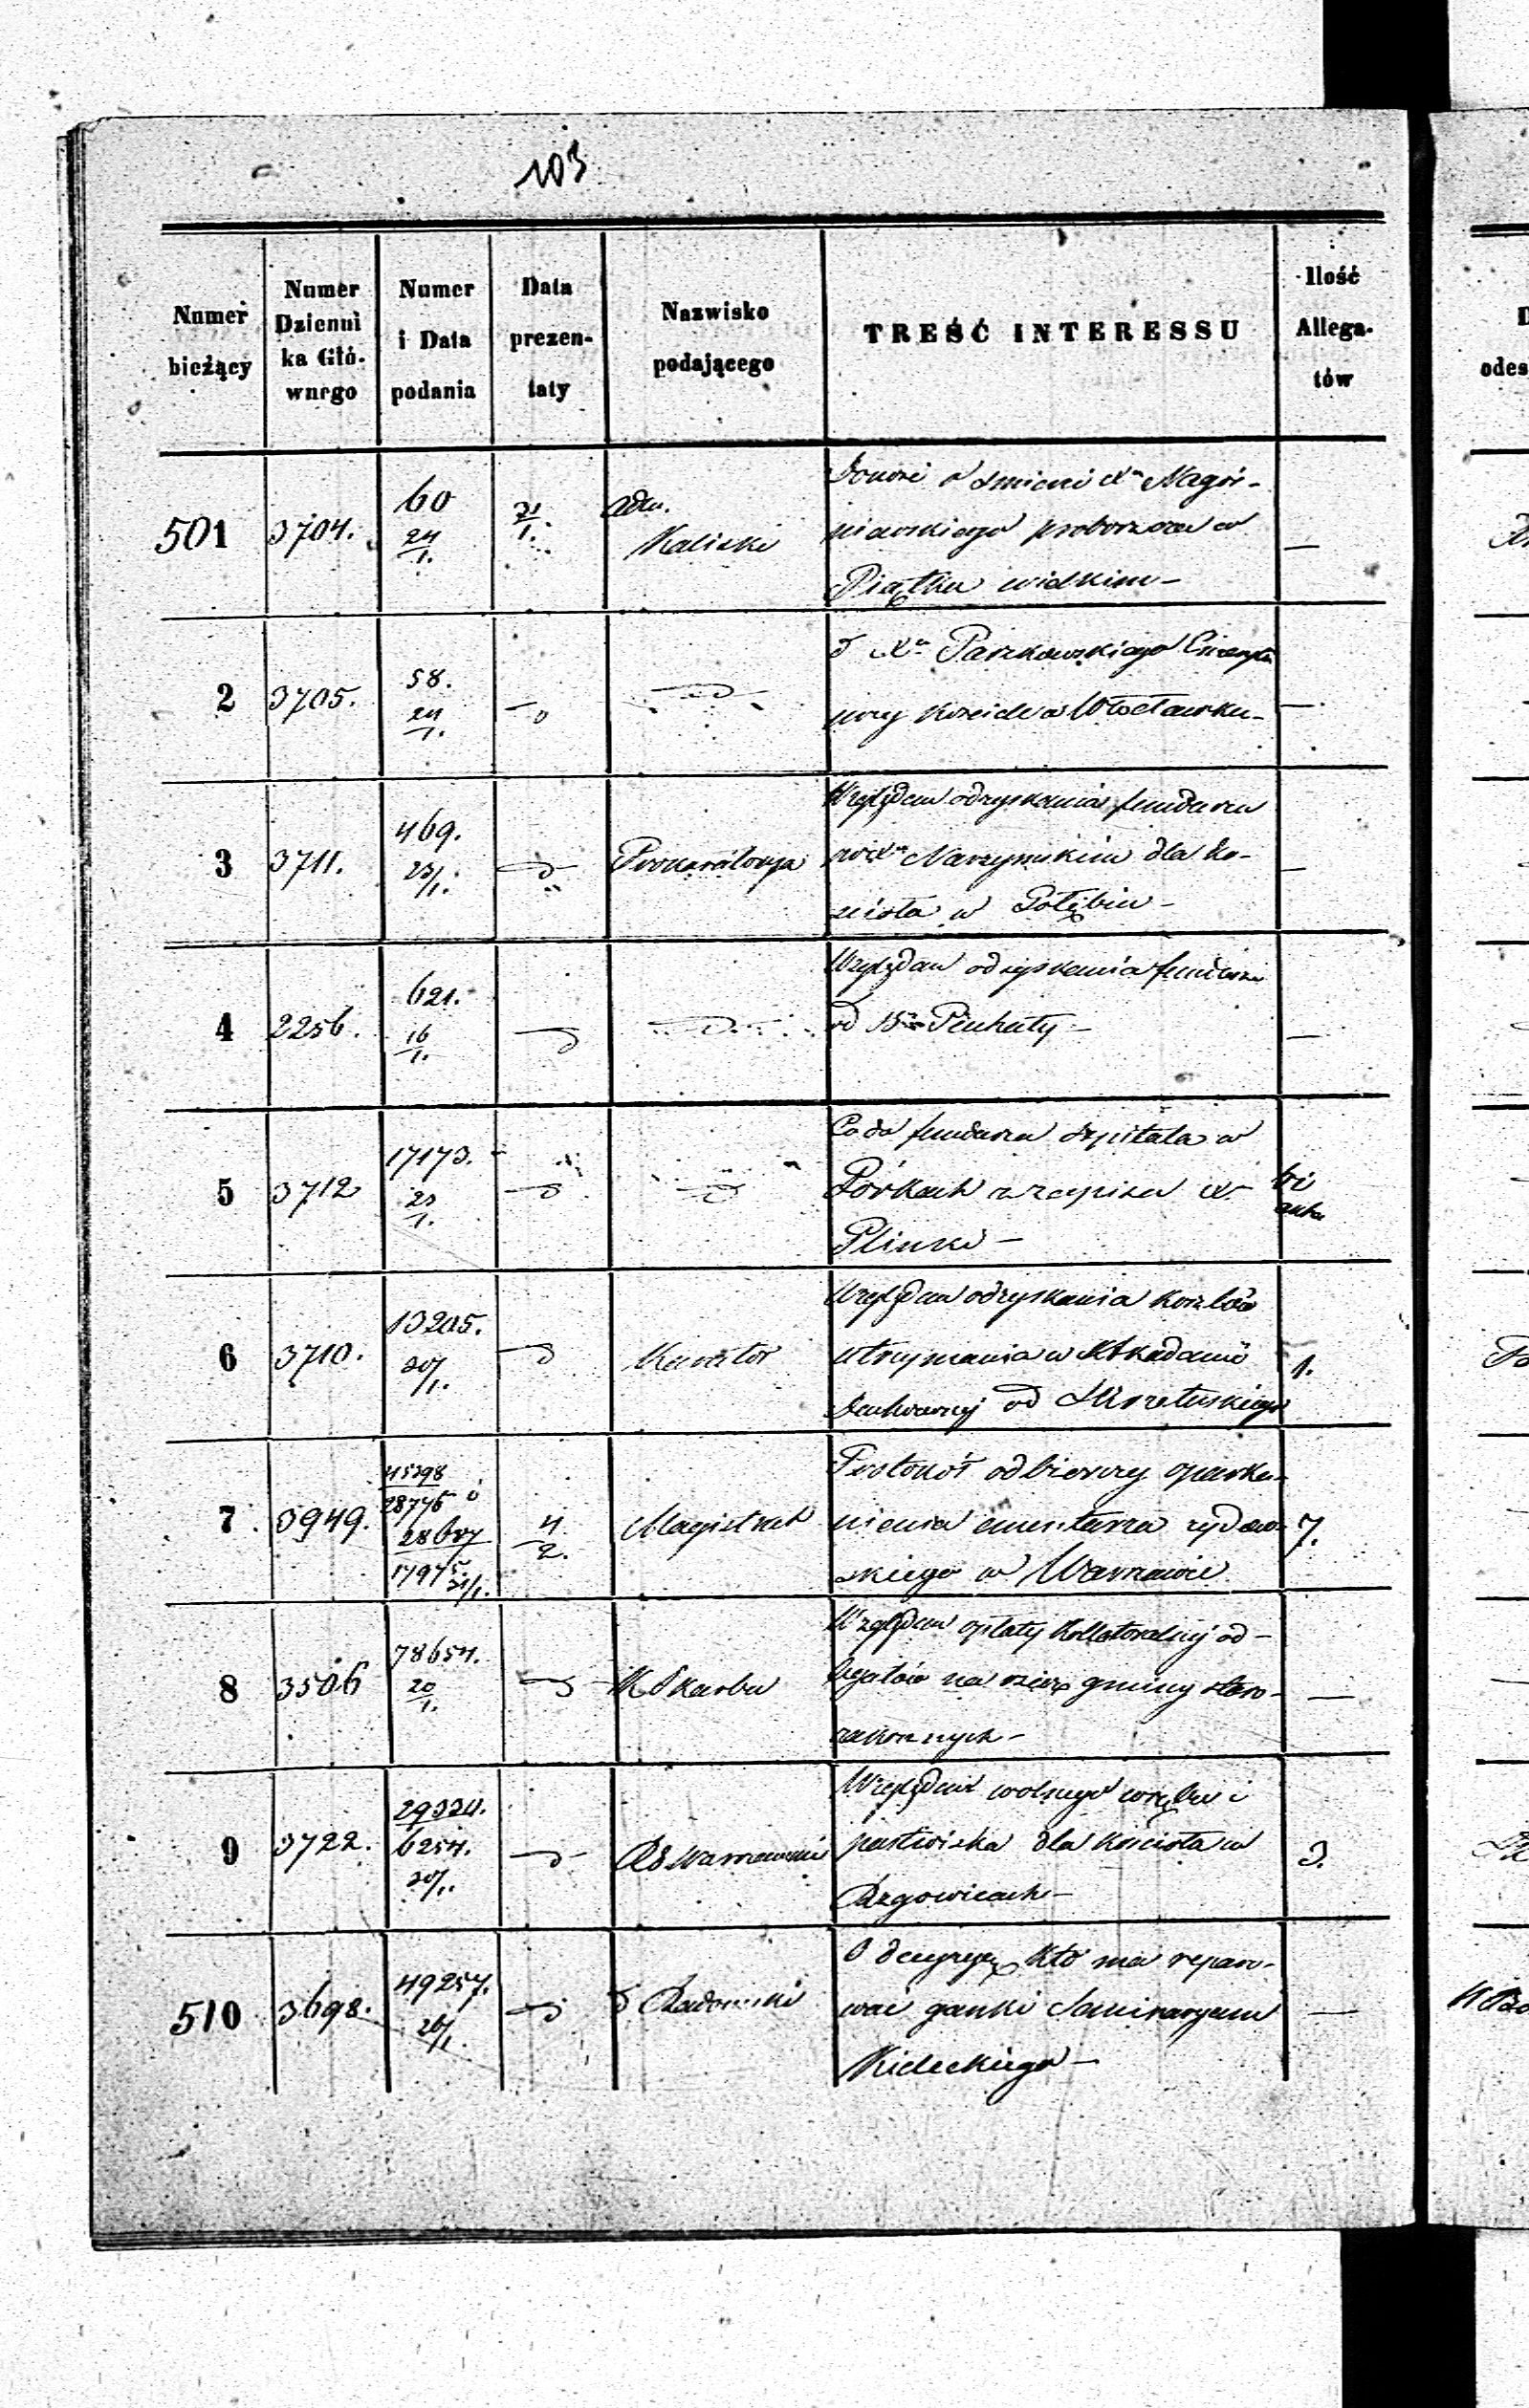 103
Numer bieżący
Numer Dziennika Głównego
Numer i Data podania
Data prezentaty
Nazwisko podającego
TREŚĆ INTERESSU
Ilość Allegatów
501 3704. 60 24/1. 31/1. Adm. Kaliski
Donosi o śmierci Xa Nagór-
niewskiego proboszcza w
Piątku wielkim –
2 3705. 58. 24/1.
d Xa Paszkowskiego
przy Kościele w Włocławku –
3 3711. 469. 23/1. d Prokuratorya
Względem odzyskania funduszu
Narzymskim dla Ko-
ścioła w Gołębiu –
4 2256. 621. 16/1. d d
Względem odzyskania funduszu
od Piechuty –
5 3712 17173. 23/1. d d
Co do funduszu szpitala w
Górkach z zapisu X
Plinski –
6 3710. 13205. 30/1. d Kurator 1.
Względem odzyskania kosztów
utrzymania w Akademii
Duchownej od Skrzetuskiego
7 3949. 45298 28776 28687 17975. 31/1. 4/2. Magistrat 7.
Protokół odbiorczy oparka-
nienia cmentarza żydow-
skiego w Warszawie
8 3506 78654. 20/1. d K Skarbu –
Względem opłaty Kollateralnej od
legatów na rzecz gminy staro-
zakonnych –
9 3722. 29334. 6254. 30/1. d RG Warszawski 3.
Względem wolnego wrębu i
pastwiska dla Kościoła w
Rzgowicach –
510 3698. 49257. 26/1. d d Radomski –
O decyzyę kto ma reparo-
wać ganki Seminaryum
Kieleckiego –